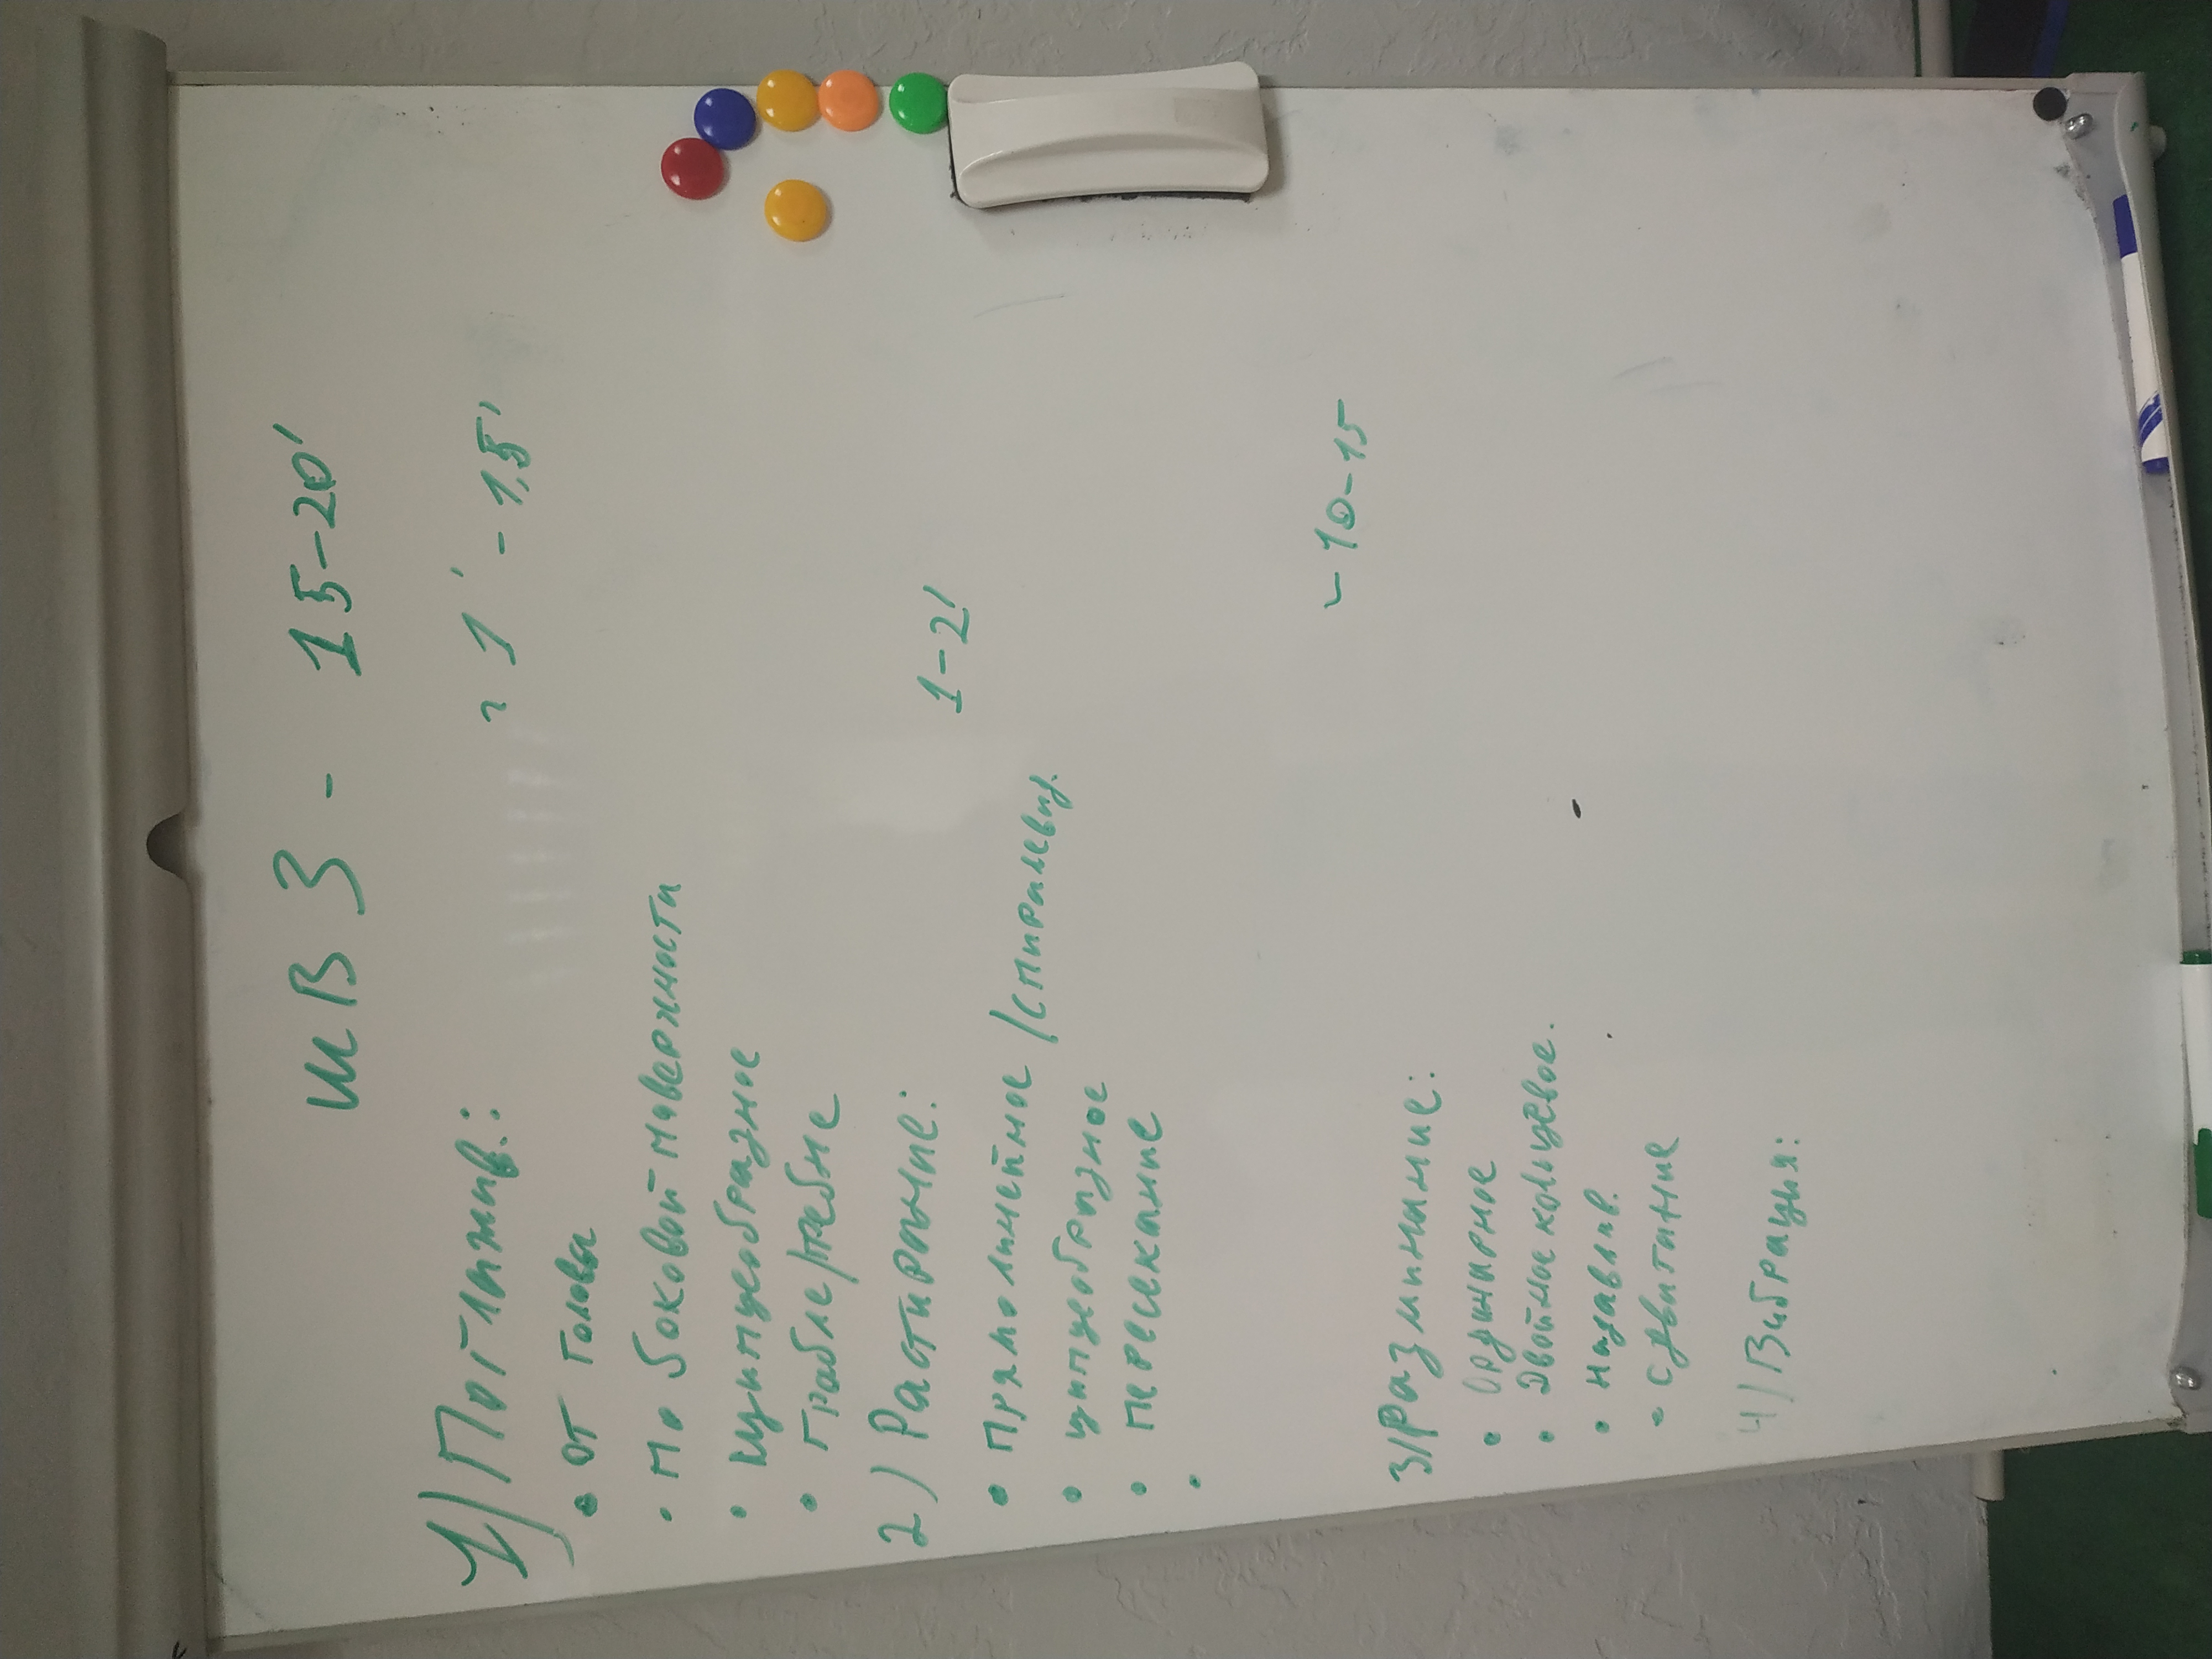 ШВЗ - 15-20'
1) Поглажив.: ~ 1' - 1,5'
• от головы
• по боковой поверхности
• щипцеобразное
• Грабле/гребне
2) Растирание: 1-2'
• Прямолинейное /спиралевид.
• щипцеобразное
• пересекание
•
~ 10-15
3) Разминание:
• Ординарное
• Двойное кольцевое.
• Надавлив.
• Сдвигание
4) Вибрация: